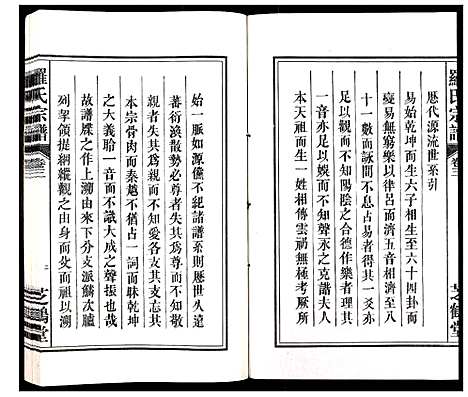 羅氏宗譜
卷三
芝鶴堂
歷代源流世系引
易始乾坤而生六子相生至六十四卦而
變易無窮樂以律呂而濟五音相濟至八
十一數而詠間不息占易者得其一爻亦
足以觀而不知陽陰之合德作樂者理其
一音亦足以娛而不知聲永之克諧夫人
本天祖而生一姓相傳雲礽無極考厥所
始一脈如源儻不犯諸譜系則歷世久遠
蕃衍渙散勢必尊者失其為尊而不知敬
親者失其為親而不知愛各支其支忘其
本宗骨肉而秦越不猶占一詞而昧乾坤
之大義聆一音而不識大成之聲振也哉
故譜牒之作上溯由來下分支派鱗次臚
列挈領提綱縱觀之由身而父而祖以溯
羅氏宗譜
卷三
二
芝鶴堂